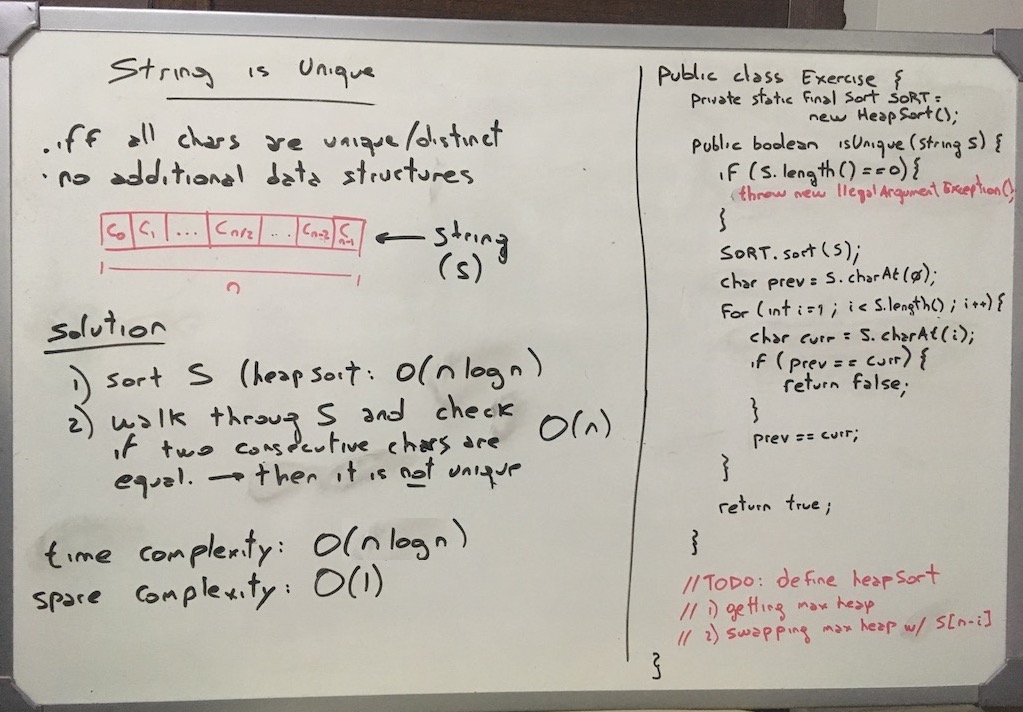 String is Unique
. iff all chars are unique/distinct
· no additional data structures
C0 C1 ... Cn/2 ... Cn-2 Cn-1 ← string
(S)
n
solution
1) sort S (heapsort: O(n log n)
2) walk throug S and check
if two consecutive chars are O(n)
equal. → then it is not unique
time complexity: O(n log n)
space complexity: O(1)
public class Exercise {
private static final Sort SORT =
new HeapSort();
public boolean isUnique(String S) {
if (S.length() == 0) {
throw new IlegalArgumentException();
}
SORT.sort(S);
char prev = S.charAt(0);
For (int i=1; i < S.length(); i++) {
char curr = S.charAt(i);
if (prev == curr) {
return false;
}
prev == curr;
}
return true;
}
//TODO: define heapSort
// 1) getting max heap
// 2) swapping max heap w/ S[n-i]
}